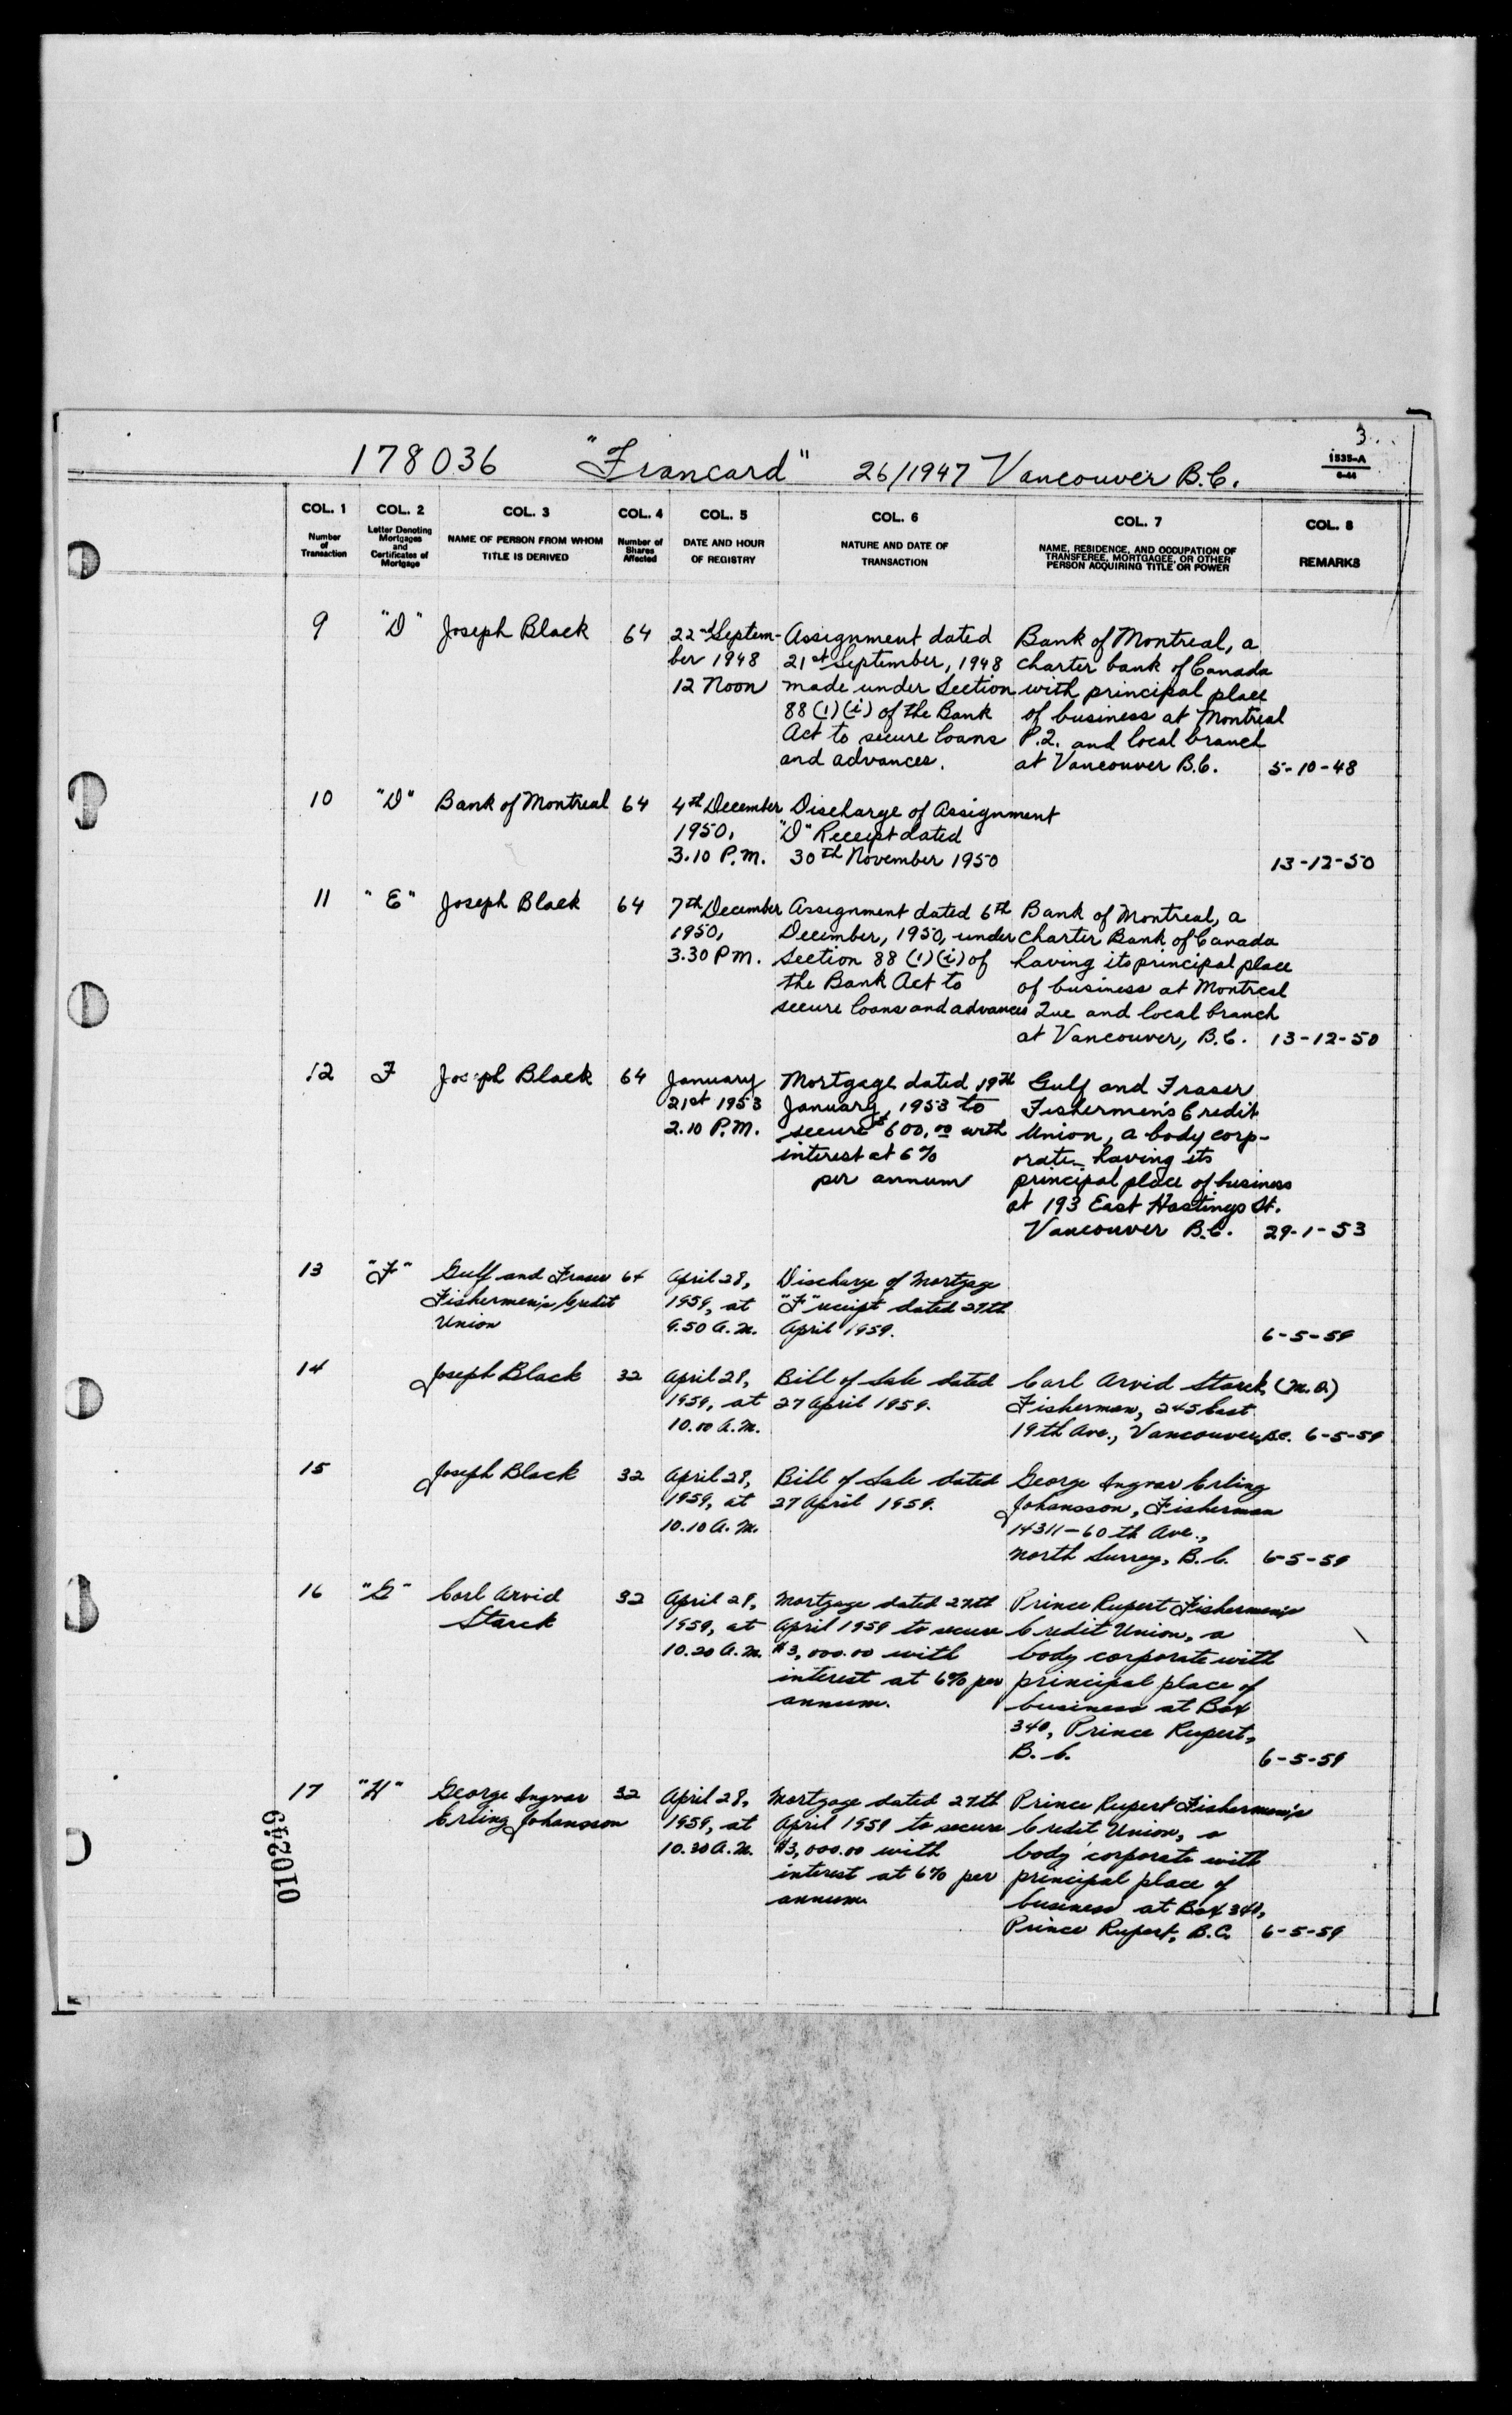 3.
178036 "Francard" 26/1947 Vancouver B.C.
1535-A
6-44
COL. 1
Number
of
Transaction
COL. 2
Letter Denoting
Mortgages
and
Certificates of
Mortgage
COL. 3
NAME OF PERSON FROM WHOM
TITLE IS DERIVED
COL. 4
Number of
Shares
Affected
COL. 5
DATE AND HOUR
OF REGISTRY
COL. 6
NATURE AND DATE OF
TRANSACTION
COL. 7
NAME, RESIDENCE, AND OCCUPATION OF
TRANSFEREE, MORTGAGEE, OR OTHER
PERSON ACQUIRING TITLE OR POWER
COL. 8
REMARKS
9
"D"
Joseph Black
64
22nd Septem-
ber 1948
12 Noon
Assignment dated
21st September, 1948
made under Section
88 (1)(i) of the Bank
Act to secure loans
and advances.
Bank of Montreal, a
charter bank of Canada
with principal place
of business at Montreal
P.Q. and local branch
at Vancouver B.C.
5-10-48
10
"D"
Bank of Montreal
64
4th December
1950,
3.10 P.M.
Discharge of Assignment
"D" Receipt dated
30th November 1950
13-12-50
11
"E"
Joseph Black
64
7th December
1950,
3.30 P.M.
Assignment dated 6th
December, 1950, under
Section 88 (1)(i) of
the Bank Act to
secure loans and advances
Bank of Montreal, a
Charter Bank of Canada
having its principal place
of business at Montreal
Que and local branch
at Vancouver, B.C.
13-12-50
12
F
Joseph Black
64
January
21st 1953
2.10 P.M.
Mortgage dated 19th
January, 1953 to
secure $600.00 with
interest at 6%
per annum
Gulf and Fraser
Fishermen's Credit
Union, a body corp-
orate having its
principal place of business
at 193 East Hastings St.
Vancouver B.C.
29-1-53
13
"F"
Gulf and Fraser
Fishermen's Credit
Union
64
April 28,
1959, at
9.50 A.M.
Discharge of Mortgage
"F" receipt dated 27th
April 1959.
6-5-59
14
Joseph Black
32
April 28,
1959, at
10.00 A.M.
Bill of Sale dated
27 April 1959.
Carl Arvid Starck (M.O.)
Fisherman, 245 East
19th Ave., Vancouver, B.C.
6-5-59
15
Joseph Black
32
April 28,
1959, at
10.10 A.M.
Bill of Sale dated
27 April 1959.
George Ingvar Erling
Johansson, Fisherman
14311-60th Ave.,
North Surrey, B.C.
6-5-59
16
"G"
Carl Arvid
Starck
32
April 28,
1959, at
10.20 A.M.
Mortgage dated 27th
April 1959 to secure
$3,000.00 with
interest at 6% per
annum.
Prince Rupert Fishermen's
Credit Union, a
body corporate with
principal place of
business at Box
340, Prince Rupert,
B.C.
6-5-59
17
"H"
George Ingvar
Erling Johansson
32
April 28,
1959, at
10.30 A.M.
Mortgage dated 27th
April 1959 to secure
$3,000.00 with
interest at 6% per
annum
Prince Rupert Fishermen's
Credit Union, a
body corporate with
principal place of
business at Box 340,
Prince Rupert, B.C.
6-5-59
010249